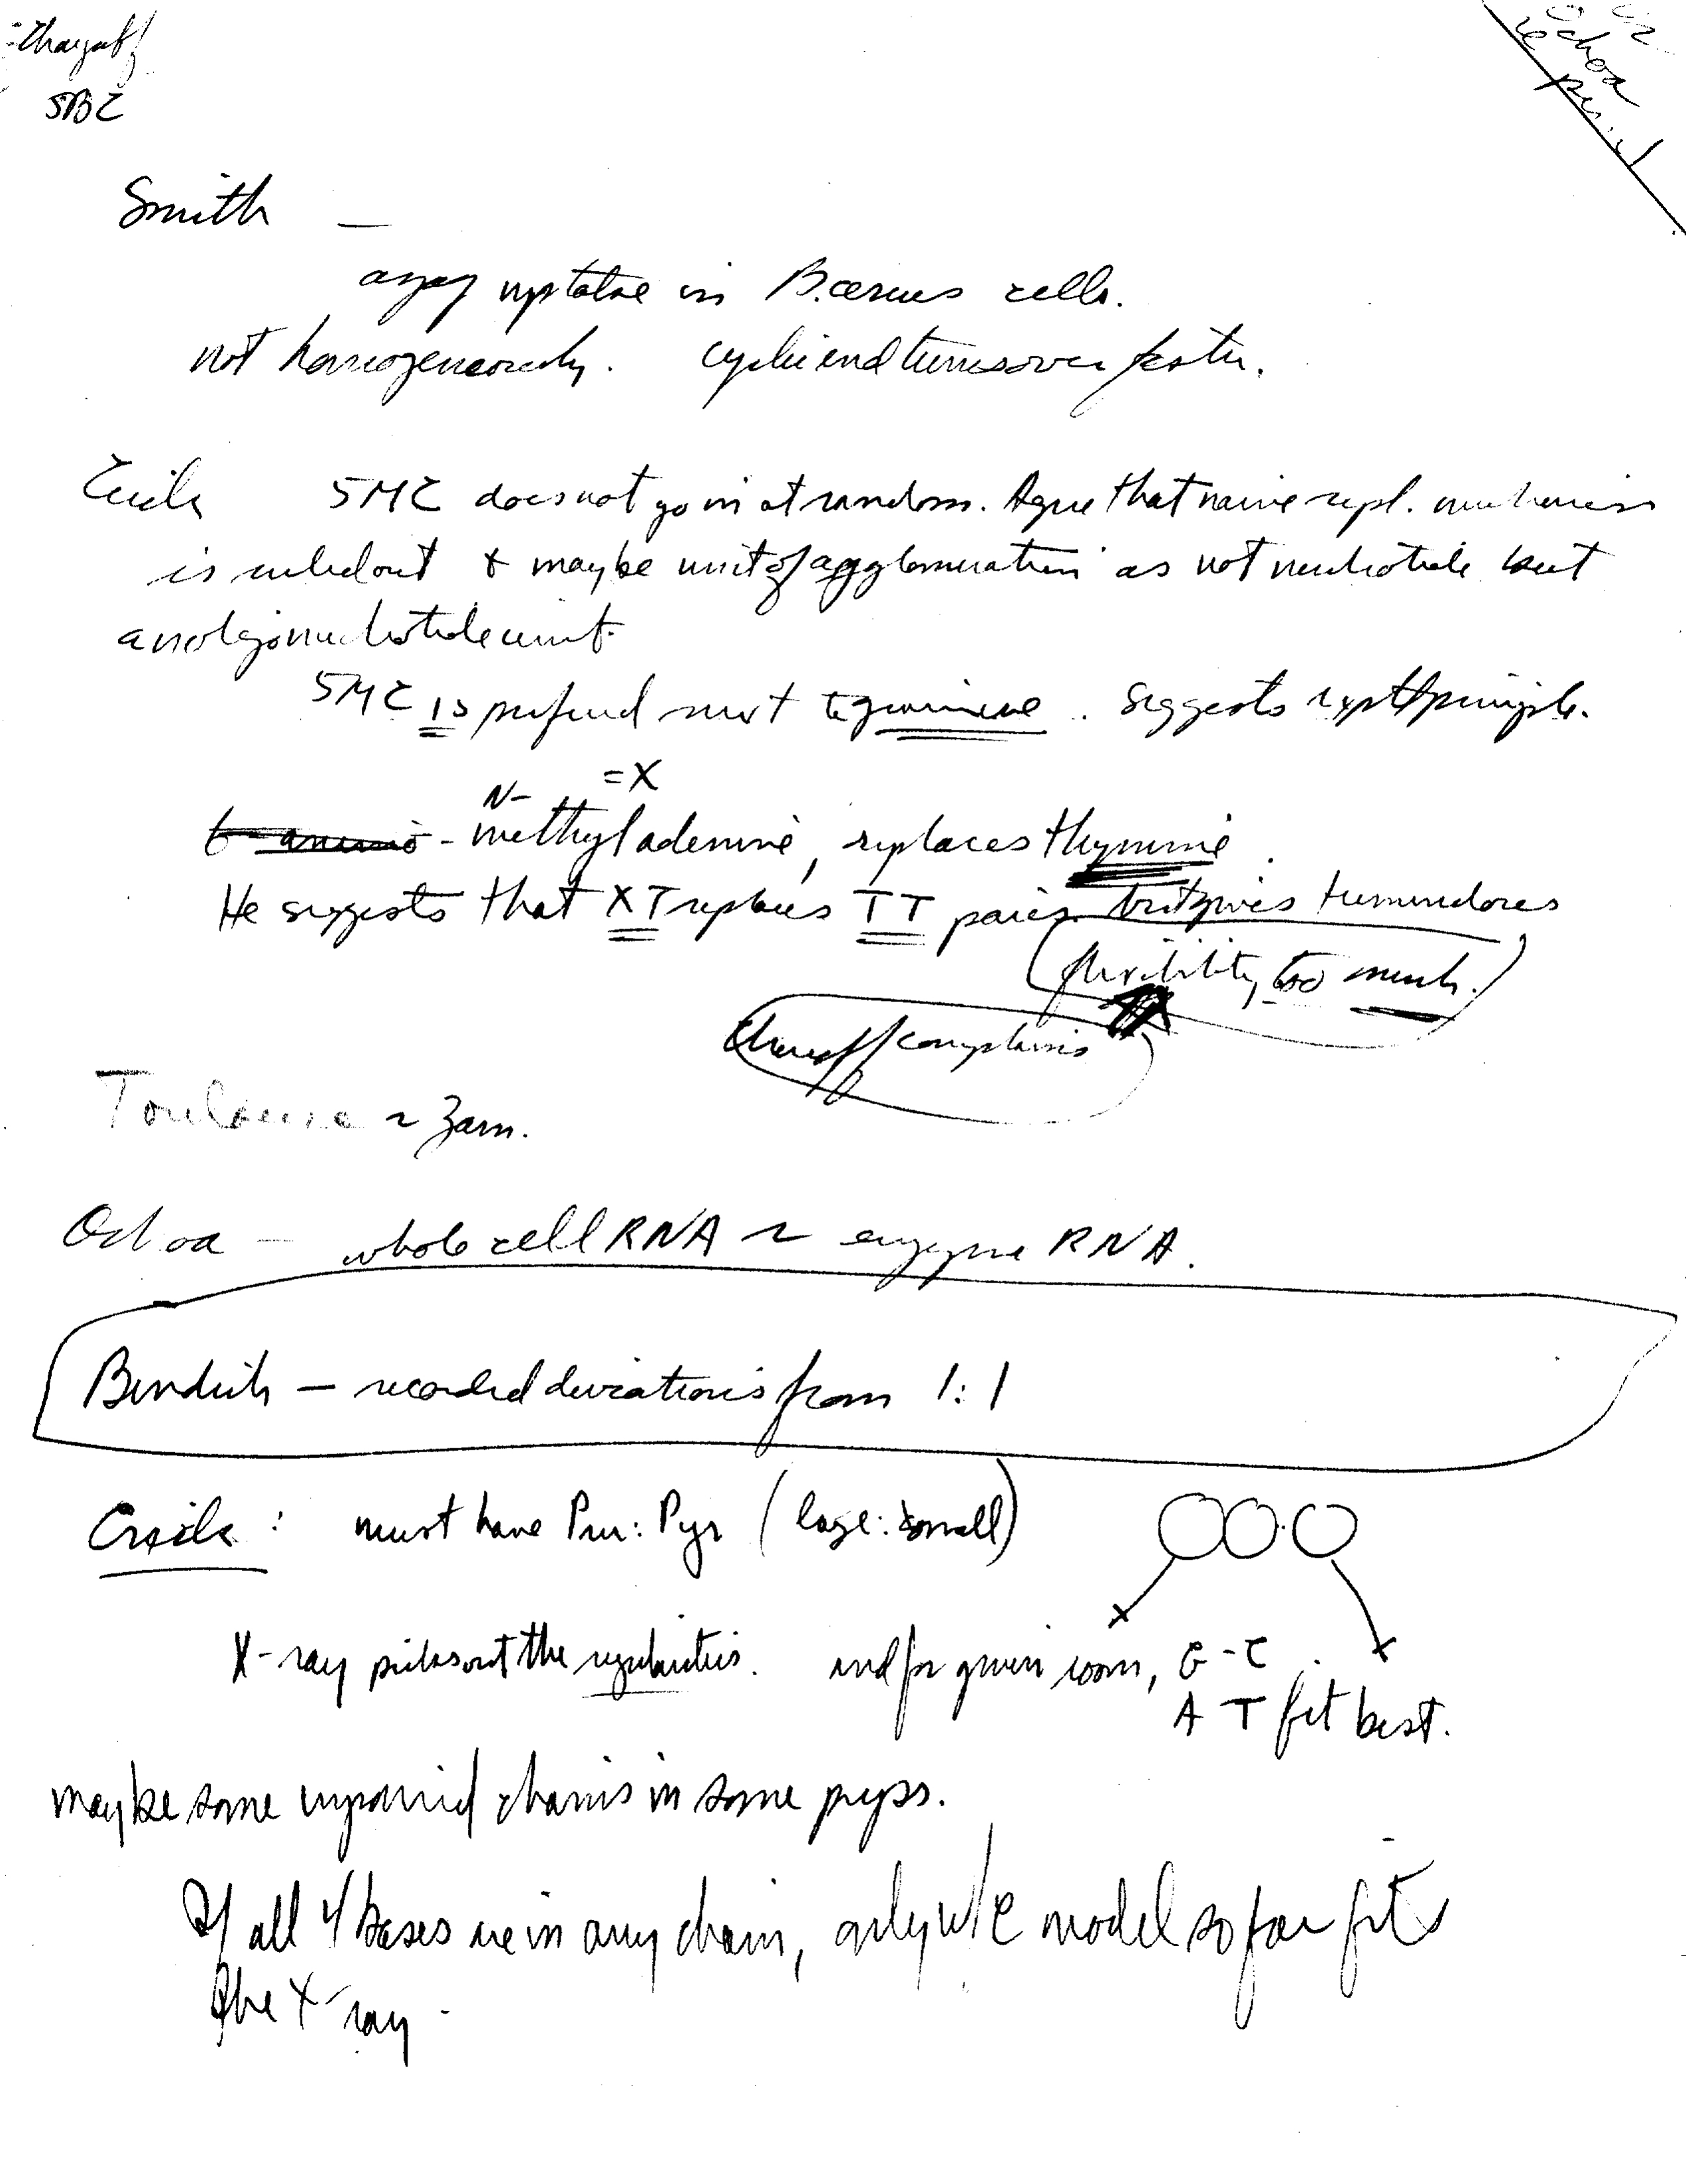 5BC
Ochoa
Smith —
uptake in B. cereus cells.
not homogeneously. cyclic end turns over faster.
Crick 5MC does not go in at random. Agree that naive repl. mechanism
is ruled out & maybe unit of agglomeration is not nucleotide but
an oligonucleotide unit.
5MC is preferred next to guanine. Suggests
N- =X
6-amino - methyl adenine, replaces thymine.
He suggests that XT replaces TT pairs. but gives tremendous
(flexibility, too much.)
Chargaff complains
Toulouse ~ Zam.
Ochoa — whole cell RNA ~ enzyme RNA.
Bendich — recorded deviations from 1:1
Crick: must have Pur: Pyr (large: small)
X-ray picks out the regularities. and for given room, G-C
A T fit best.
maybe some unpaired chains in some preps.
If all 4 bases are in any chain, only W/C model so far fits
the X-ray.